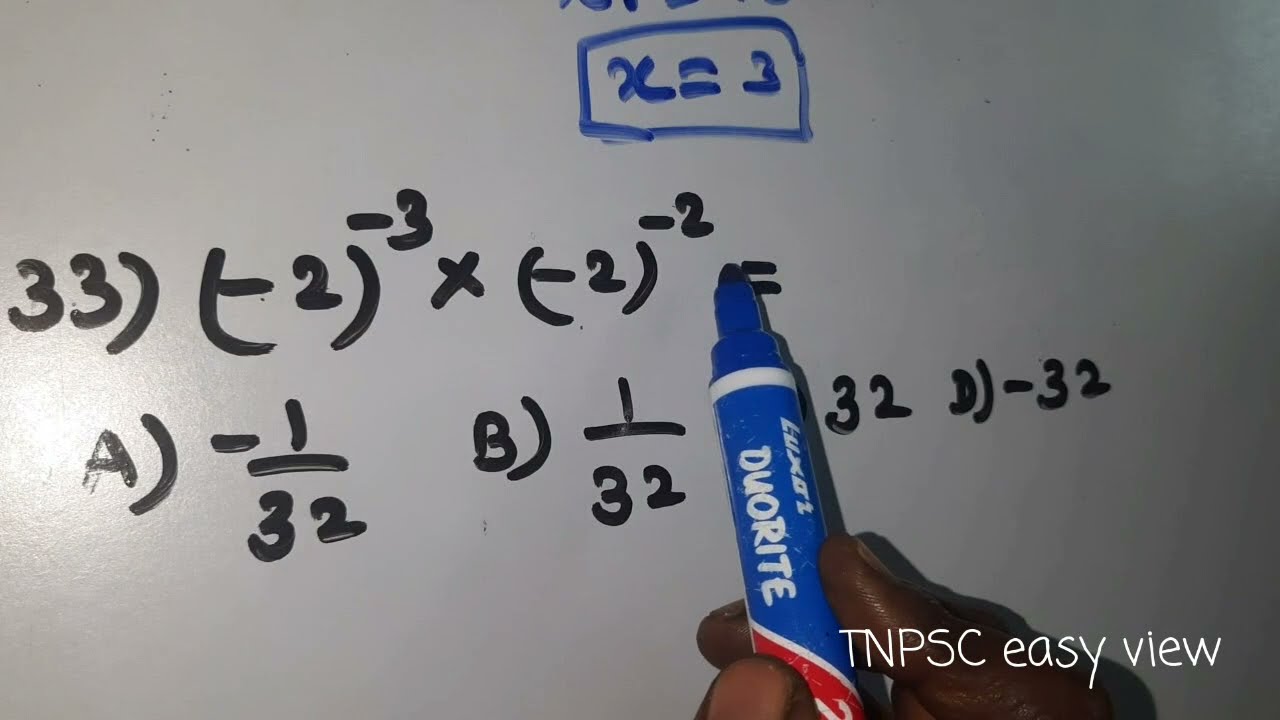 x = 3
33) (-2)^-3 × (-2)^-2 =
A) -1/32 B) 1/32 32 D) -32
Luxor
DUORITE
TNPSC easy view